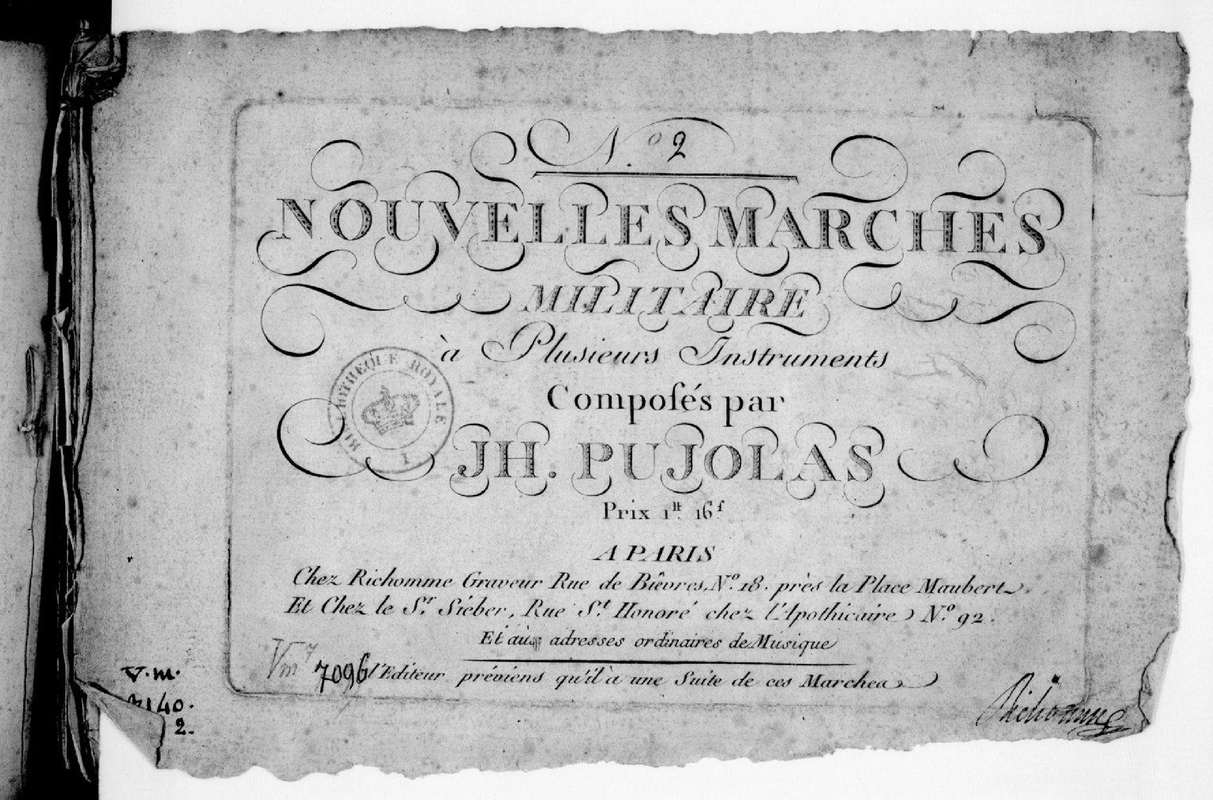 N.º 2
NOUVELLES MARCHES
MILITAIRE
à Plusieurs Instruments
Composés par
JH. PUJOLAS
Prix 1.ᵗᵗ 16.ᶠ
A PARIS
Chez Richomme Graveur Rue de Bièvres, N.º 18. près la Place Maubert
Et Chez le S.ʳ Sieber, Rue S.ᵗ Honoré chez l'Apothicaire N.º 92.
Et aux adresses ordinaires de Musique
l'Editeur préviens qu'il à une Suite de ces Marches
BIBLIOTHEQUE ROYALE
Vm⁷ 7096
V.m.
2140.
2.
Richomme